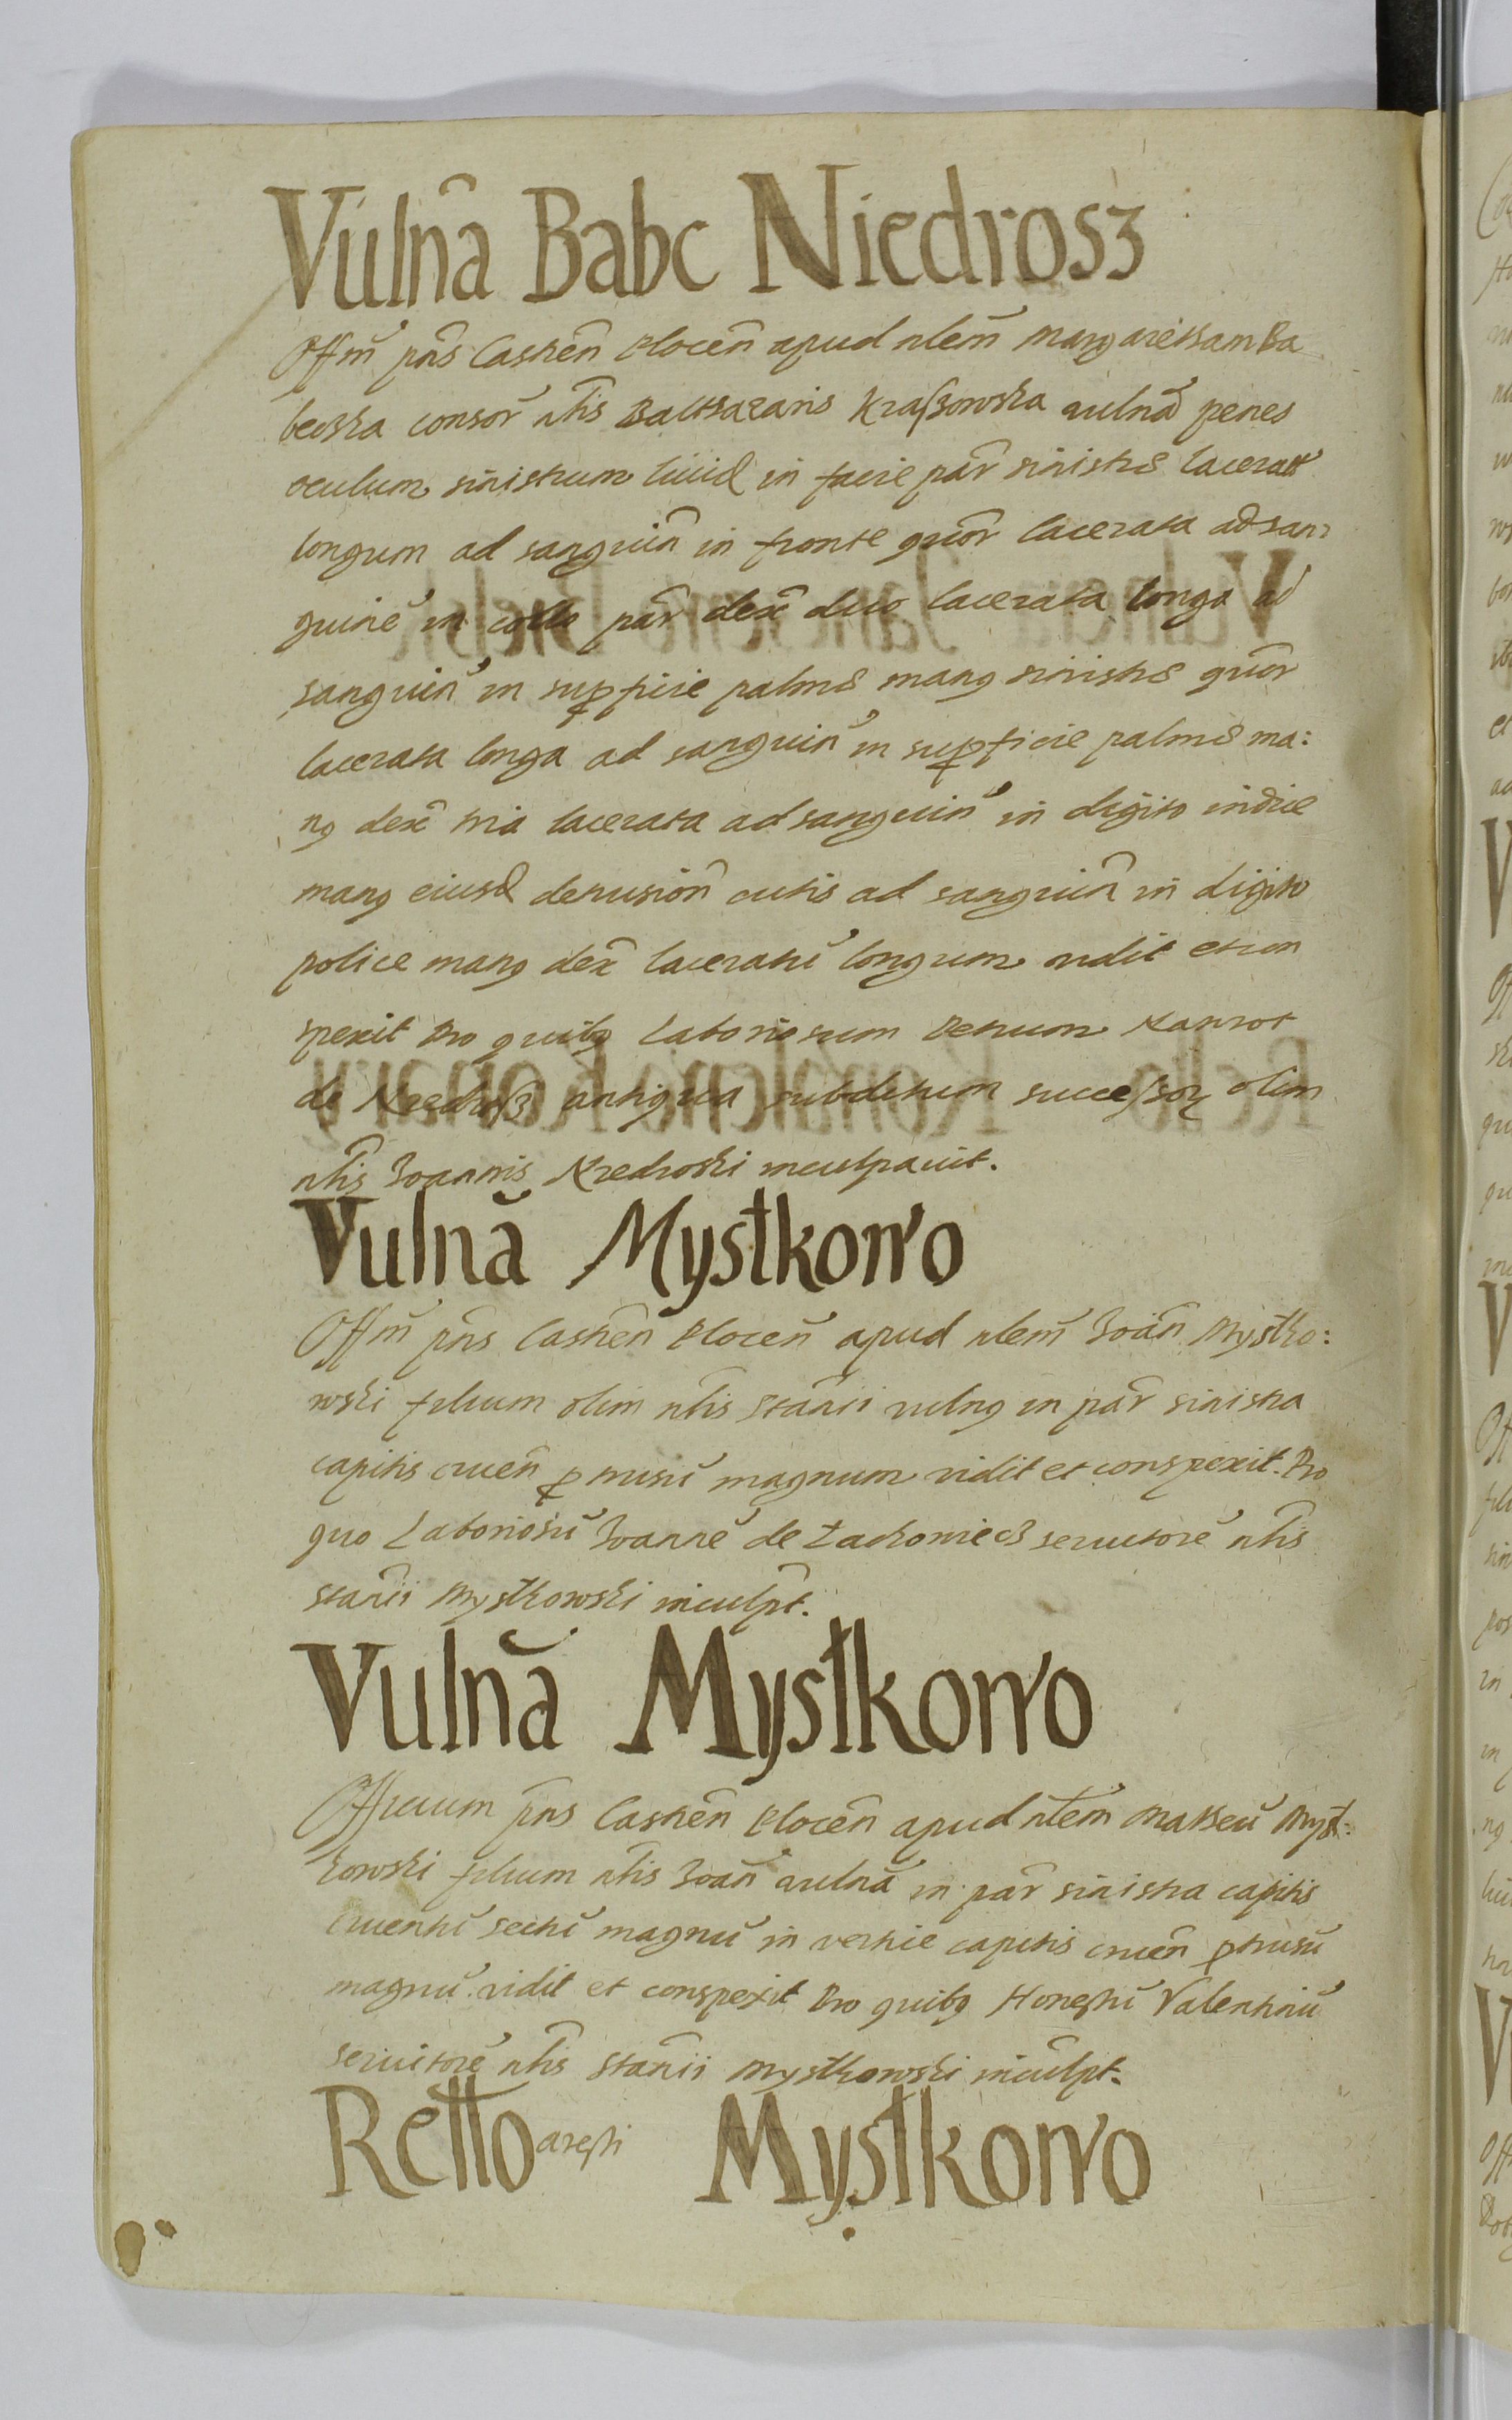 Vulnã Babc Niedrosz
Offm̃ pñs Castreñ Plocen̄ apud nlem̃ Margaretham Ba
becska consor̃ nlis Balthazaris Krassowska vulnã penes
oculum sinistrum livid in facie par̃ sinistra lacerat
longum ad sanguin̄ in fronte quor̃ lacerata ad san
guinē in collo par̃ dex̃ duo lacerata longa ad
sanguin̄ in supficie palma manus sinistra quor̃
lacerata longa ad sanguin̄ in supficie palma ma:
nus dex̃ tria lacerata ad sanguin̄ in digito indice
manus eiusd detrusion̄ cutis ad sanguin̄ in digito
police manus dex̃ laceratū longum vidit et con
spexit Pro quibus Laboriosum Petrum
de Niedrosz antiqua subditum successor olim
nlis Joannis Niedroski inculpavit.
Vulnã Mystkowo
Offm̃ pñs Castren̄ Plocen̄ apud nlem̃ Joan̄ Mystko:
wski filium olim nlis Stanii vulnus in par̃ sinistra
capitis cruen̄ p tusū magnum vidit et conspexit. Pro
quo Laboriosū Joannē de servitorē nlis
Stanii Mystkowski inculpt.
Vulnã Mystkowo
Officium pñs Castren̄ Plocen̄ apud nlem̃ Matheū Myst:
kowski filium nlis Joan̄ vulnã in par̃ sinistra capitis
cruentū sectū magnū in vertice capitis cruen̄ ptusū
magnū vidit et conspexit Pro quibus Honestū Valentinū
servitorē nlis Stanii Mystkowski inculpt.
Retto aresti Mystkowo